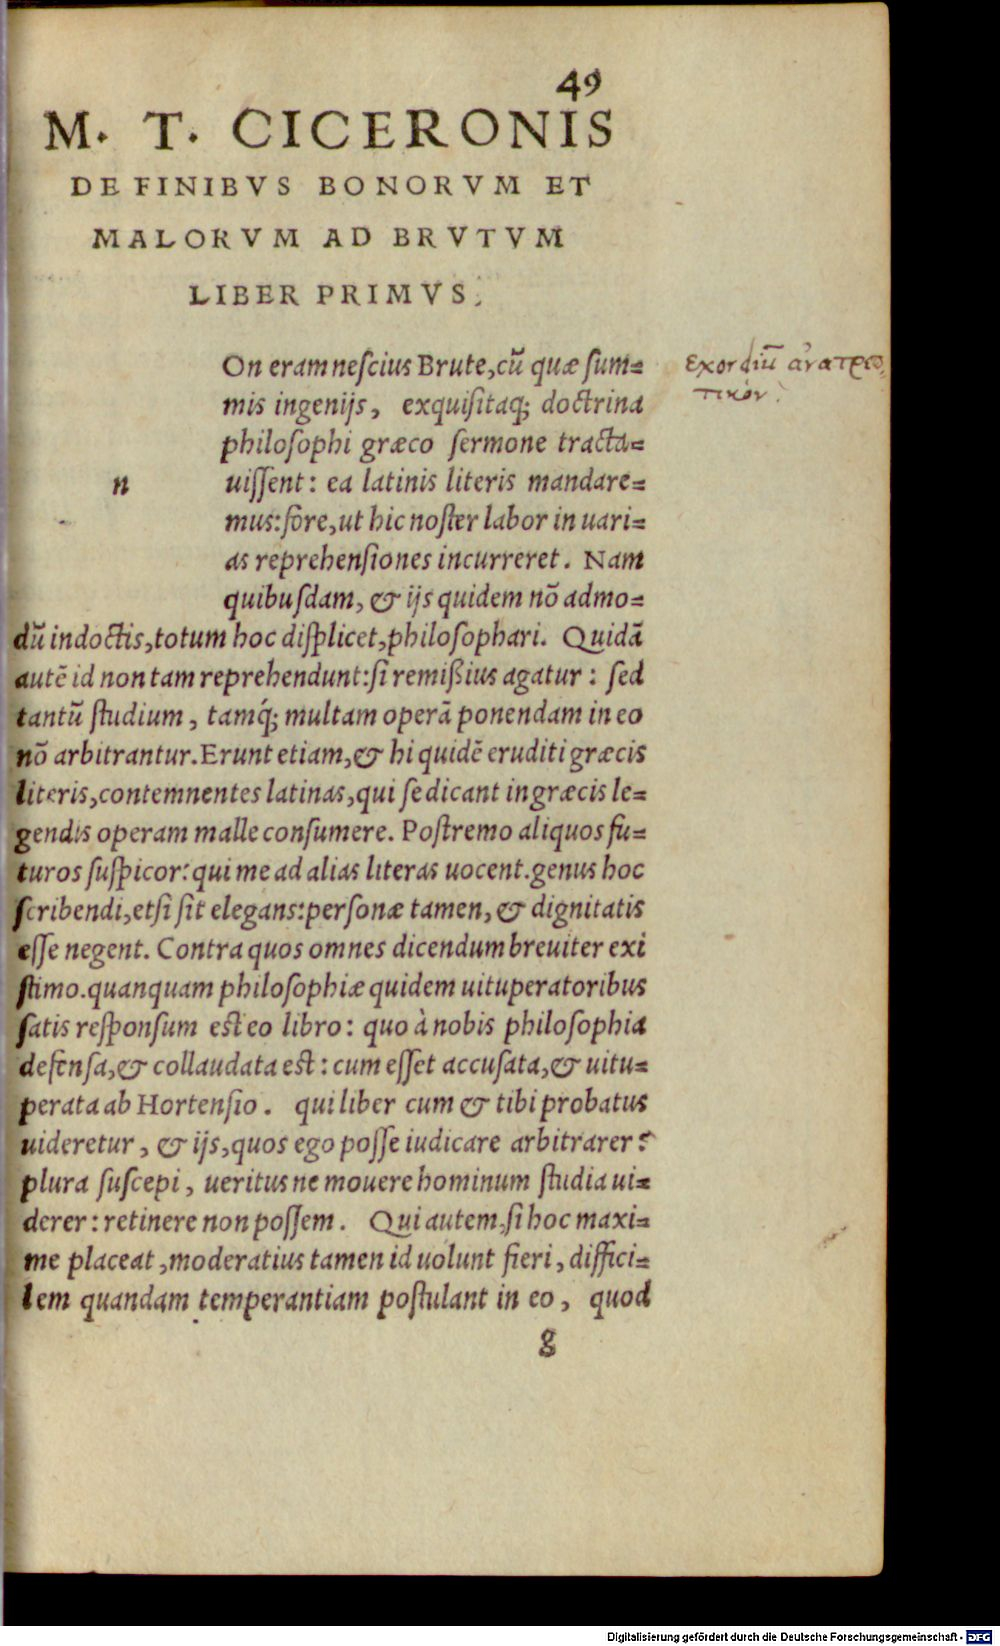 49
M. T. CICERONIS
DE FINIBVS BONORVM ET
MALORVM AD BRVTVM
LIBER PRIMVS.
On eram neſcius Brute,cū quæ ſum=
mis ingenijs, exquiſitaq; doctrina
philoſophi græco ſermone tracta=
n uiſſent: ea latinis literis mandare=
mus:fore,ut hic noſter labor in uari=
as reprehenſiones incurreret. Nam
quibuſdam, & ijs quidem nō admo=
dū indoctis,totum hoc diſplicet,philoſophari. Quidā
autē id non tam reprehendunt:ſi remißius agatur: ſed
tantū ſtudium, tamq́; multam operā ponendam in eo
nō arbitrantur.Erunt etiam,& hi quidē eruditi græcis
literis,contemnentes latinas,qui ſe dicant in græcis le=
gendis operam malle conſumere. Poſtremo aliquos fu=
turos ſuſpicor:qui me ad alias literas uocent.genus hoc
ſcribendi,etſi ſit elegans:perſonæ tamen,& dignitatis
eſſe negent. Contra quos omnes dicendum breuiter exi
ſtimo.quanquam philoſophiæ quidem uituperatoribus
ſatis reſponſum eſt eo libro: quo à nobis philoſophia
defenſa,& collaudata eſt: cum eſſet accuſata,& uitu=
perata ab Hortenſio. qui liber cum & tibi probatus
uideretur, & ijs,quos ego poſſe iudicare arbitrarer:
plura ſuſcepi, ueritus ne mouere hominum ſtudia ui=
derer: retinere non poſſem. Qui autem,ſi hoc maxi=
me placeat,moderatius tamen id uolunt fieri, diffici=
lem quandam temperantiam poſtulant in eo, quod
g
Exordiū ἀνατρεπ
τικόν
Digitalisierung gefördert durch die Deutsche Forschungsgemeinschaft - DFG